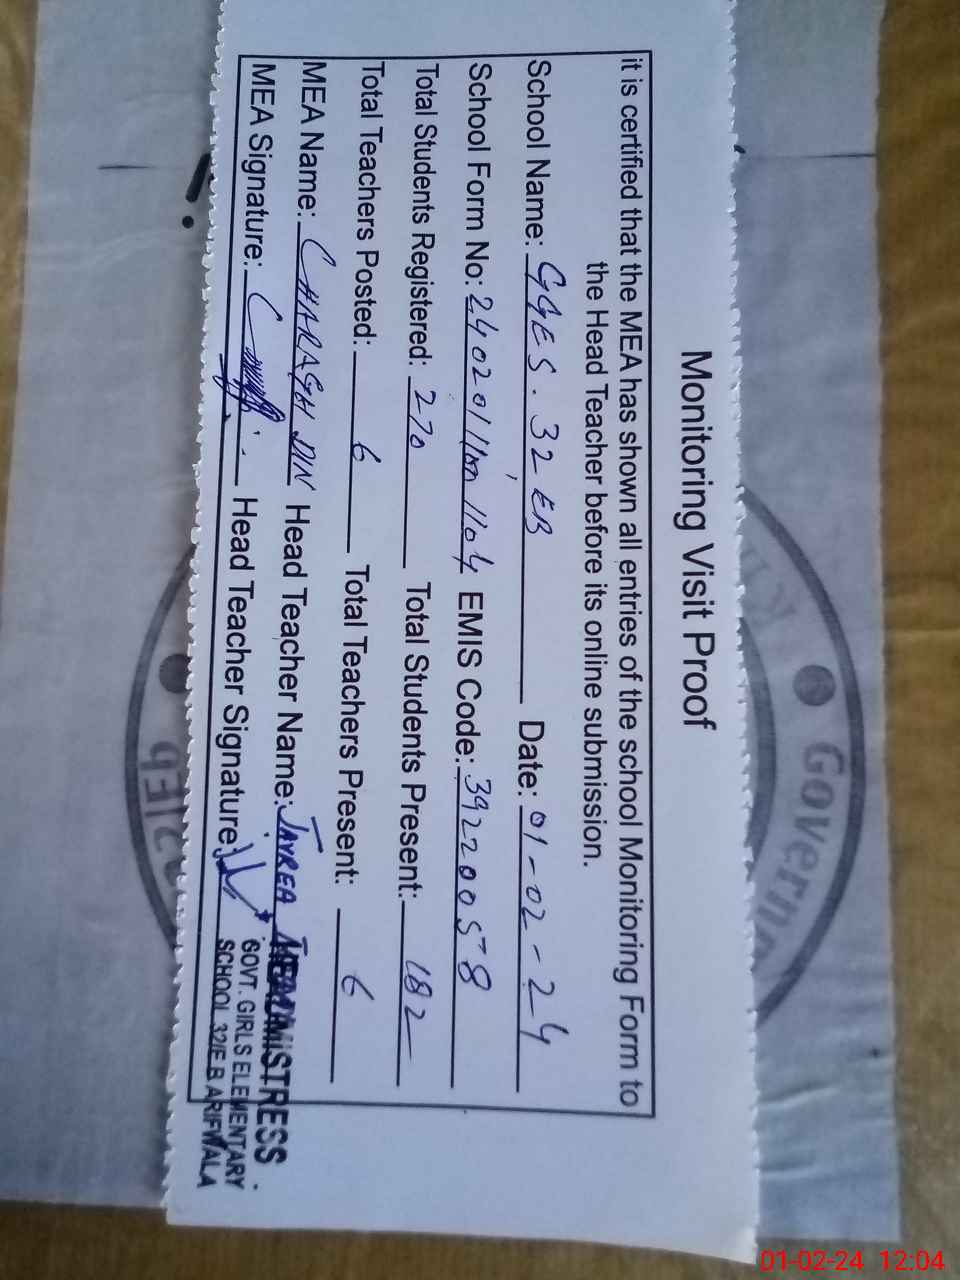 Monitoring Visit Proof
it is certified that the MEA has shown all entries of the school Monitoring Form to
the Head Teacher before its online submission.
School Name: GGES. 32 EB Date: 01-02-24
School Form No: EMIS Code: 39220058
Total Students Registered: 270 Total Students Present: 182
Total Teachers Posted: 6 Total Teachers Present: 6
MEA Name: CHARAGH DIN Head Teacher Name:
MEA Signature: Head Teacher Signature:
HEADMISTRESS
GOVT. GIRLS ELEMENTARY
SCHOOL 32/E.B ARIFWALA
01-02-24 12:04